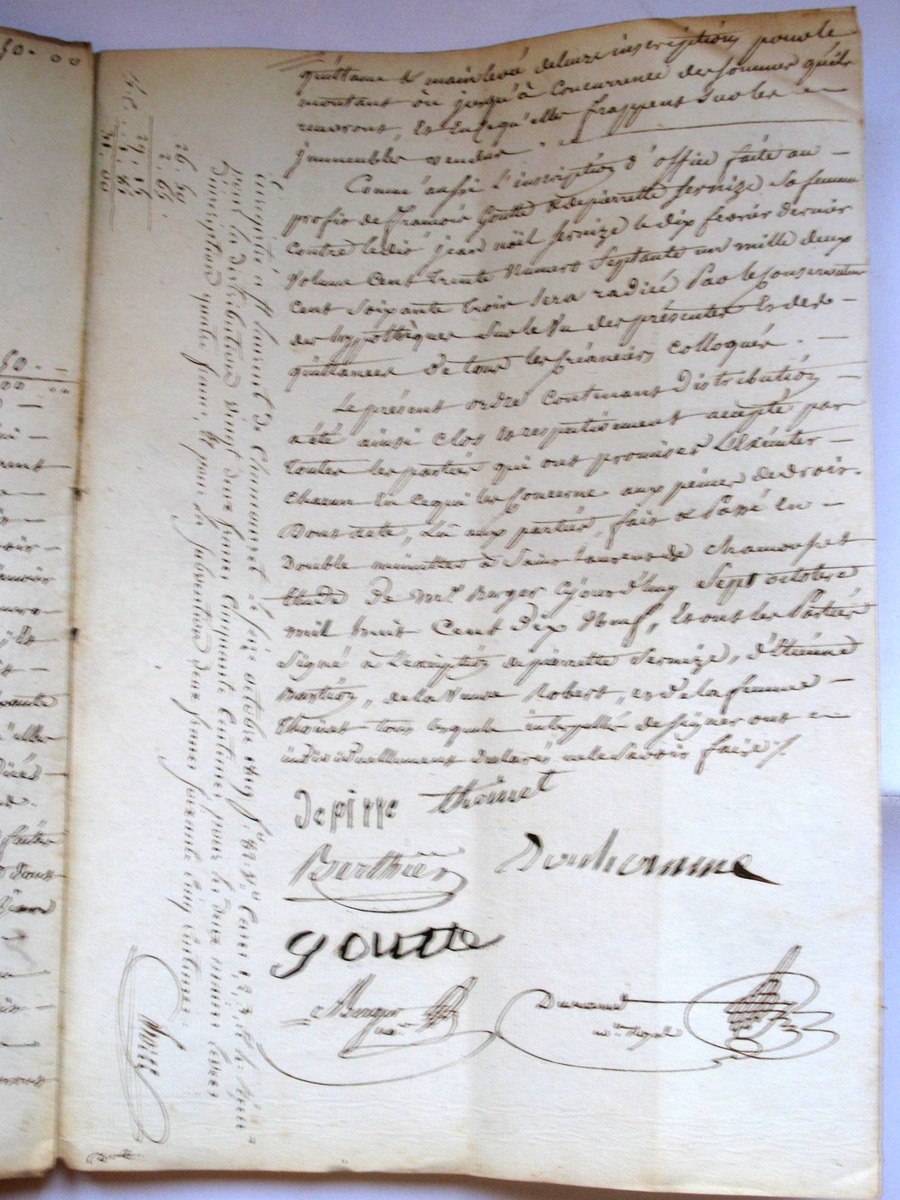 quittance et main levé de leurs inscriptions pour le
montant ou jusqu'à Concurrence des sommes qu'ils
recevront, Et en ce qu'elles frappent sur les
jmmeubles vendus.
Comm'aussi L'inscription d'office faite au
profit de françois Goutte & de pierrette fernize sa femme
contre ledit jean noël fernize le dix fevrier dernier
volume Cent trente Numero Septante un mille deux
Cent soixante trois sera radiée Par le Conservateur
des hypothèques sur le Vu des présentes Et des
quittances de tous les créanciers colloqués.
Le présent ordre Contenant Distribution
a été ainsi clos & respectivement accepté par
toutes les parties qui ont promis L'éxécuter
chacun en ce qui les Concerne aux peines de droit.
Dont acte, Lû aux parties, fait & Passé en
Double minuttes à Saint Laurent de chamousset
Etude De me. Berger cejourd'huy Sept octobre
mil huit Cent Dix Neuf, Et ont les Parties
Signé à L'exception de pierrette fernize, d'Etienne
de la Veuve Robert, et de la femme
thoinet tous lesquels interpellés de signer ont
individuellement déclaré ne le savoir faire ./.
thoinet
Berthier
Bonhomme
goutte
Berger
nre
Durand
nre Royal
Enregistré à St. Laurent de Chamousset le seize octobre 1819 fo.
pour la distribution vingt deux francs Cinquante Centimes, pour les deux main levées
D'inscription quatre francs, Et pour la subvention deux francs soixante Cinq Centimes.